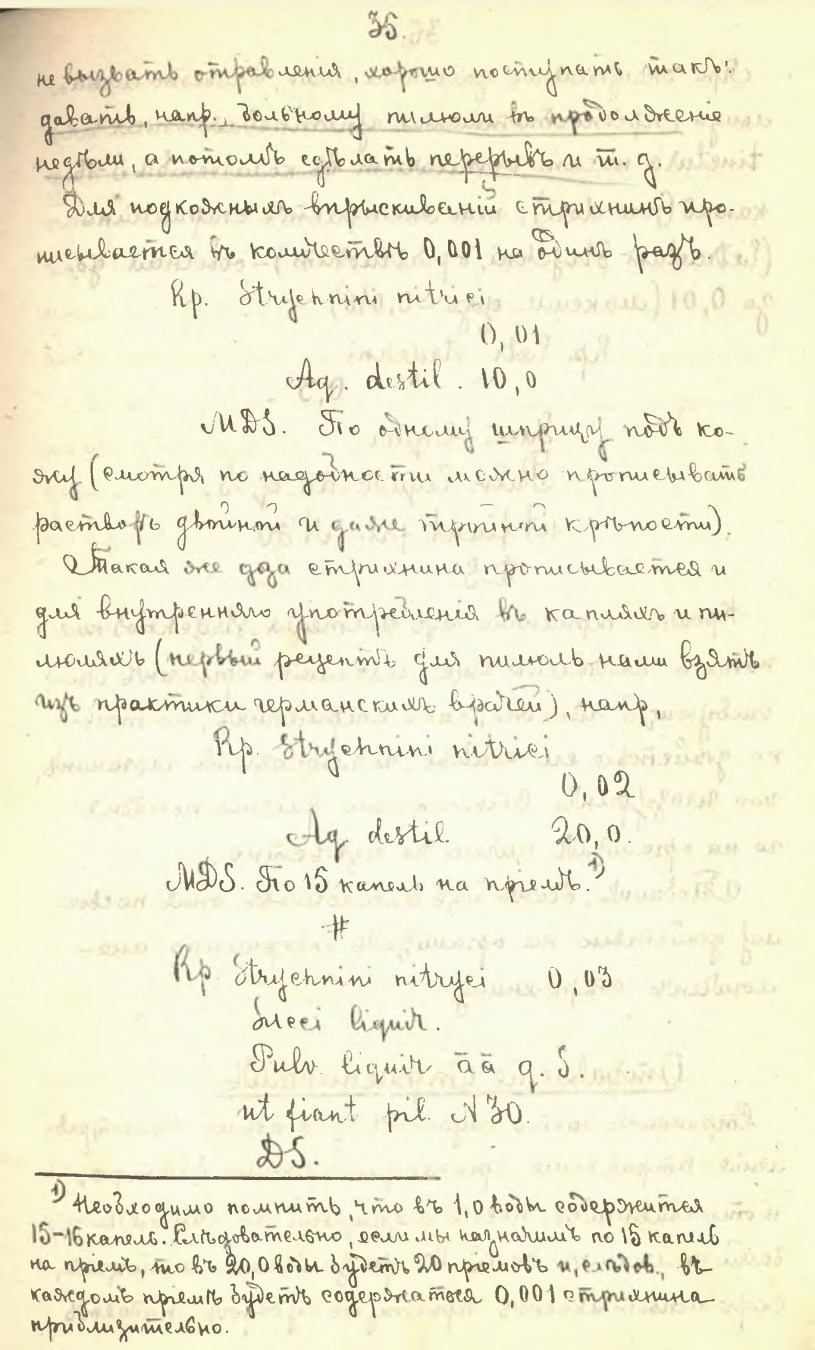 35.
не вызвать отравленія, хорошо поступать такъ:
давать, напр., больному пилюли въ продолженіе
недѣли, а потомъ сдѣлать перерывъ и т. д.
Для подкожныхъ впрыскиваній стрихнинъ про-
писывается въ количествѣ 0,001 на одинъ разъ.
Rp. Strychnini nitrici
0,01
Aq. destil. 10,0
MDS. По одному шприцу подъ ко-
жу (смотря по надобности можно прописывать
растворъ двойной и даже тройной крѣпости).
Такая же доза стрихнина прописывается и
для внутренняго употребленія въ капляхъ и пи-
люляхъ (первый рецептъ для пилюль нами взятъ
изъ практики германскихъ врачей), напр,
Rp. Strychnini nitrici
0,02
Aq destil. 20,0.
MDS. По 15 капель на пріемъ.1)
#
Rp Strychnini nitryci 0,03
Succi liquir.
Pulv. liquir āā q. S.
ut fiant pil. N 30.
DS.
1) Необходимо помнить, что въ 1,0 воды содержится
15-16 капель. Слѣдовательно, если мы назначимъ по 15 капель
на пріемъ, то въ 20,0 воды будетъ 20 пріемовъ и, слѣдов., въ
каждомъ пріемѣ будетъ содержаться 0,001 стрихнина
приблизительно.